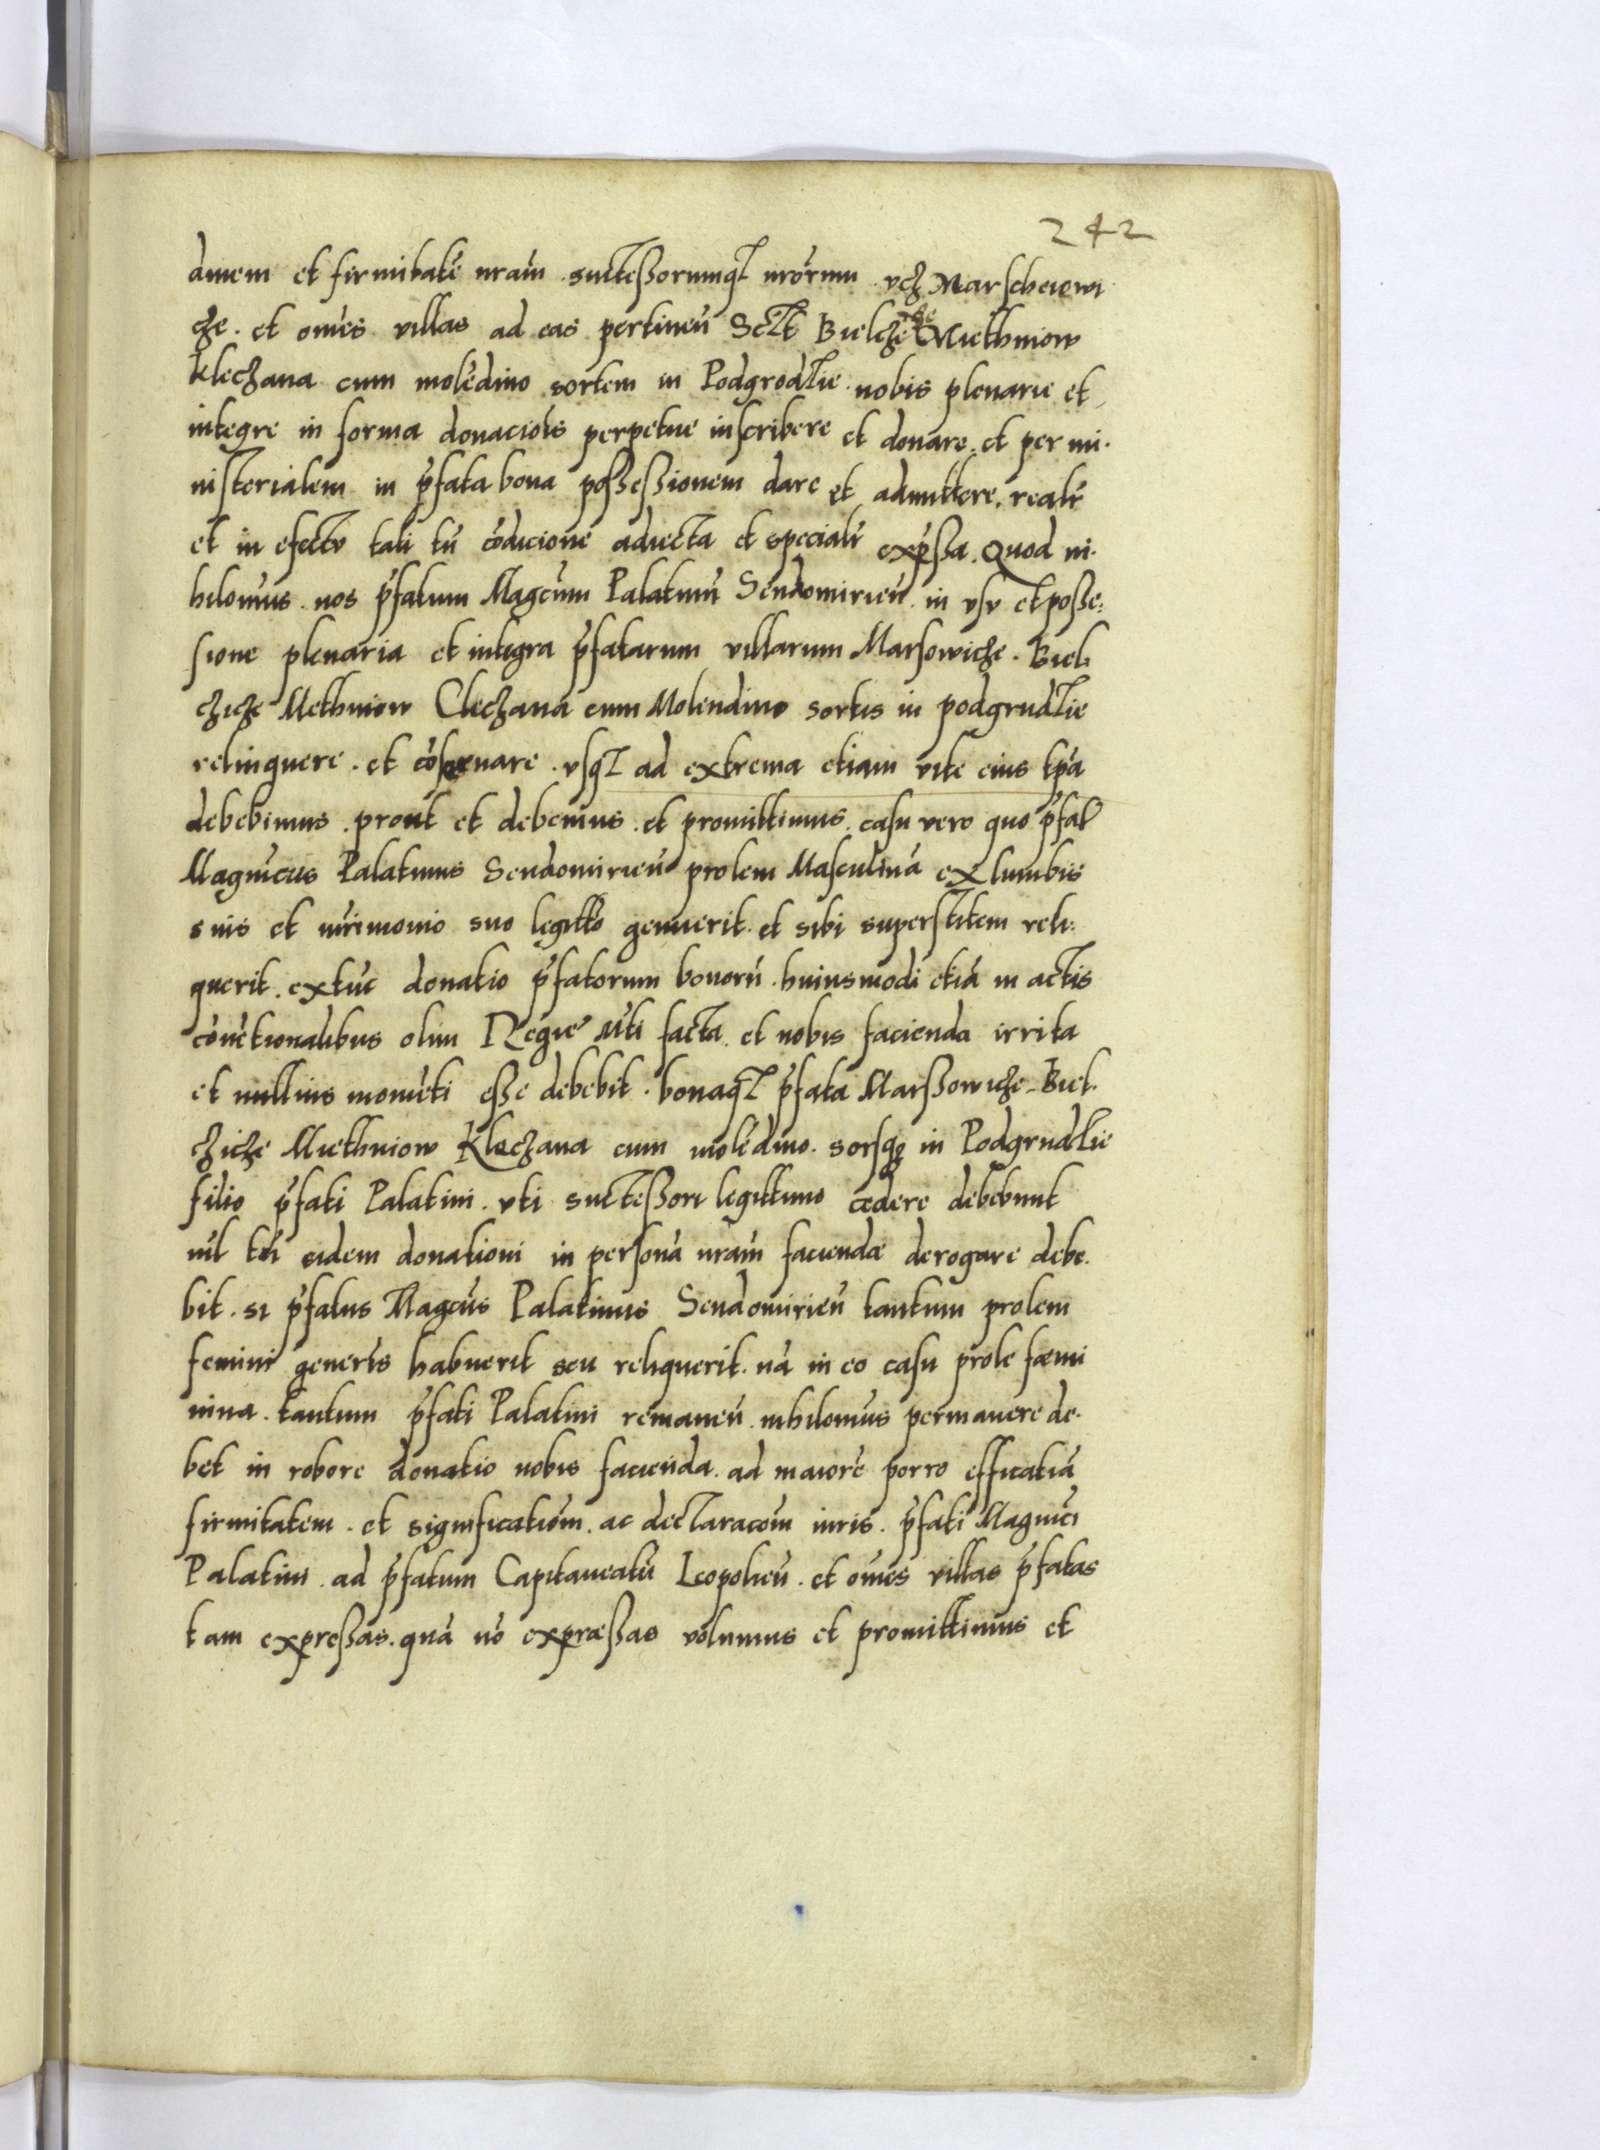 242
amem et firmitatē nrām successorumq̄ nrōrum vcz Marscheiowi
cze. et omēs villas ad eas pertineñ Sclt Bielcze Miethniow
Kleczana cum molēdino sortem in Podgrodzie nobis plenarie et
integre in forma donaciōis perpetue inscribere et donare. et per mi.
nisterialem in p̄fata bona possessionem dare et admittere. realr̄
et in efectv tali tn̄ cōdicione adiecta et specialr̄ exp̄ssa. Quod ni.
hilomīus nos p̄fatum Magcūm Palatinū Sendomirieñ in vsv et posse:
sione plenaria et integra p̄fatarum villarum Marsowicze. Biel
czicze Methniow Cleczana cum Molendino sortis in podgrudzie
relinquere. et cōseruare. vsq̄ ad extrema etiam vite eius tp̄a
debebimus. prout et debemus. et promittimus. casu vero quo p̄fat
Magnīcus Palatinus Sendomirieñ prolem Masculinā ex lumbis
suis et mr̄imonio suo legitto genuerit. et sibi superstitem reli:
querit. extūc donatio p̄fatorum bonorū huiusmodi etiā in actis
cōuētionalibus olim Regie Mti facta. et nobis facienda irrita
et nullius momēti esse debebit. bonaq̄ p̄fata Marssowicze - Biel.
czicze Miethniow Kleczana cum molēdino. sorsq̄ in Podgrudzie
filio p̄fati Palatini. vti successori legittimo cedere debebunt
nīl tn̄ eidem donationi in personā nrām facienda derogare debe.
bit. si p̄fatus Magcūs Palatinus Sendomirieñ tantum prolem
femini generis habuerit seu reliquerit. nā in eo casu prole fœmi
nina. tantum p̄fati Palatini remaneñ nihilomīus permanere de.
bet in robore donatio nobis facienda. ad maiorē porro efficatiā
firmitatem. et significatiōm. ac declaracōm iuris. p̄fati Magnīci
Palatini. ad p̄fatum Capitaneatū Leopolieñ. et omēs villas p̄fatas
tam expressas. quā nō expræssas volumus et promittimus et